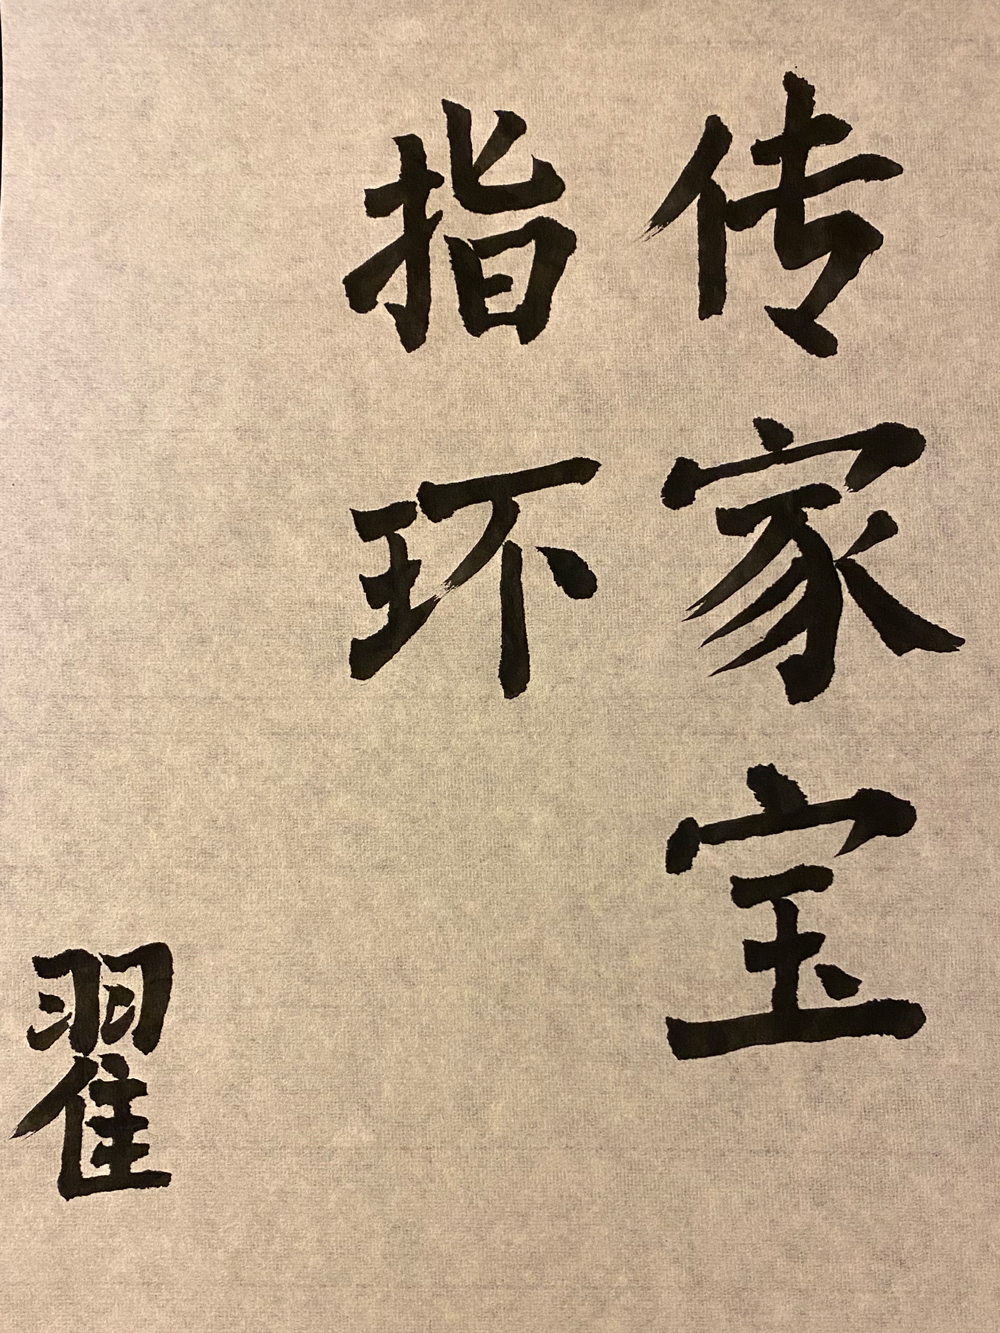 传家宝
指环
翟